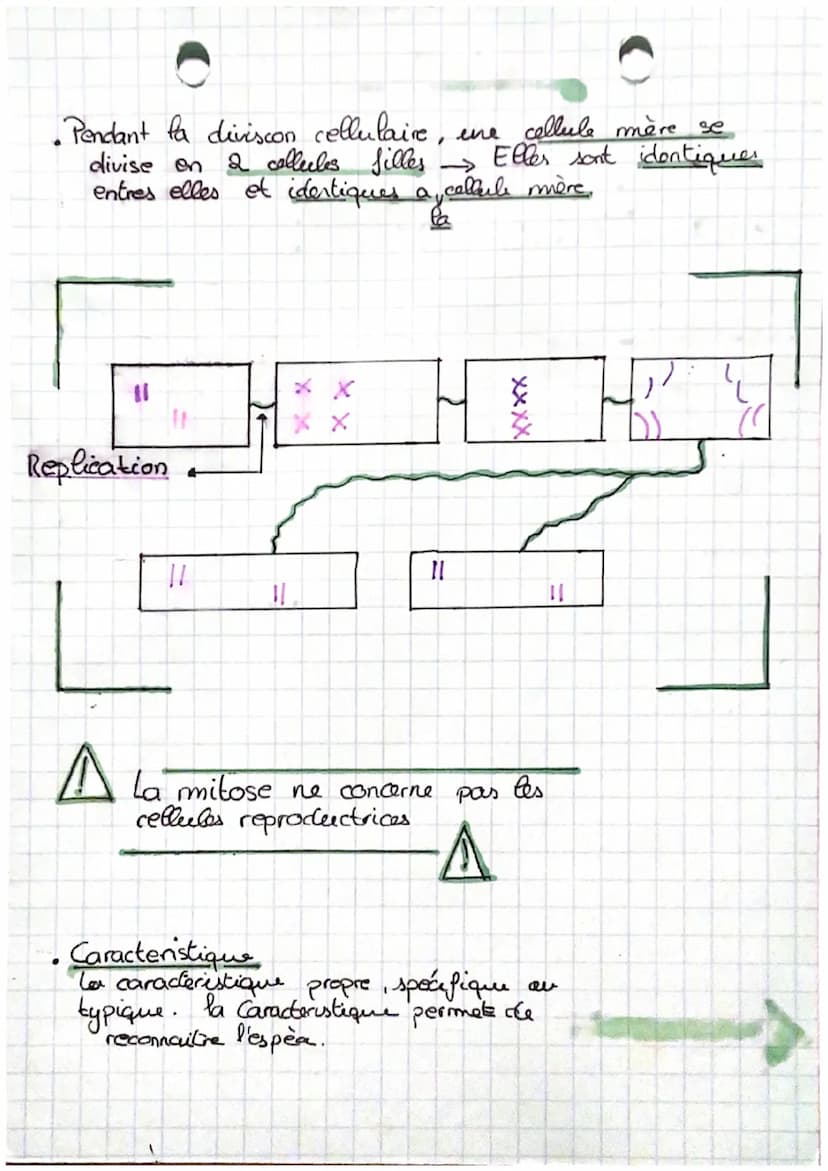 . Pendant la division cellulaire, une cellule mère se
divise en 2 cellules filles → Elles sont identiques
entres elles et identiques a la cellule mère.
Replication
La mitose ne concerne pas les
cellules reproductrices
. Caracteristique
La caractèristique propre, spécifique ou
typique. la Caracteristique permet de
reconnaitre l'espèce.